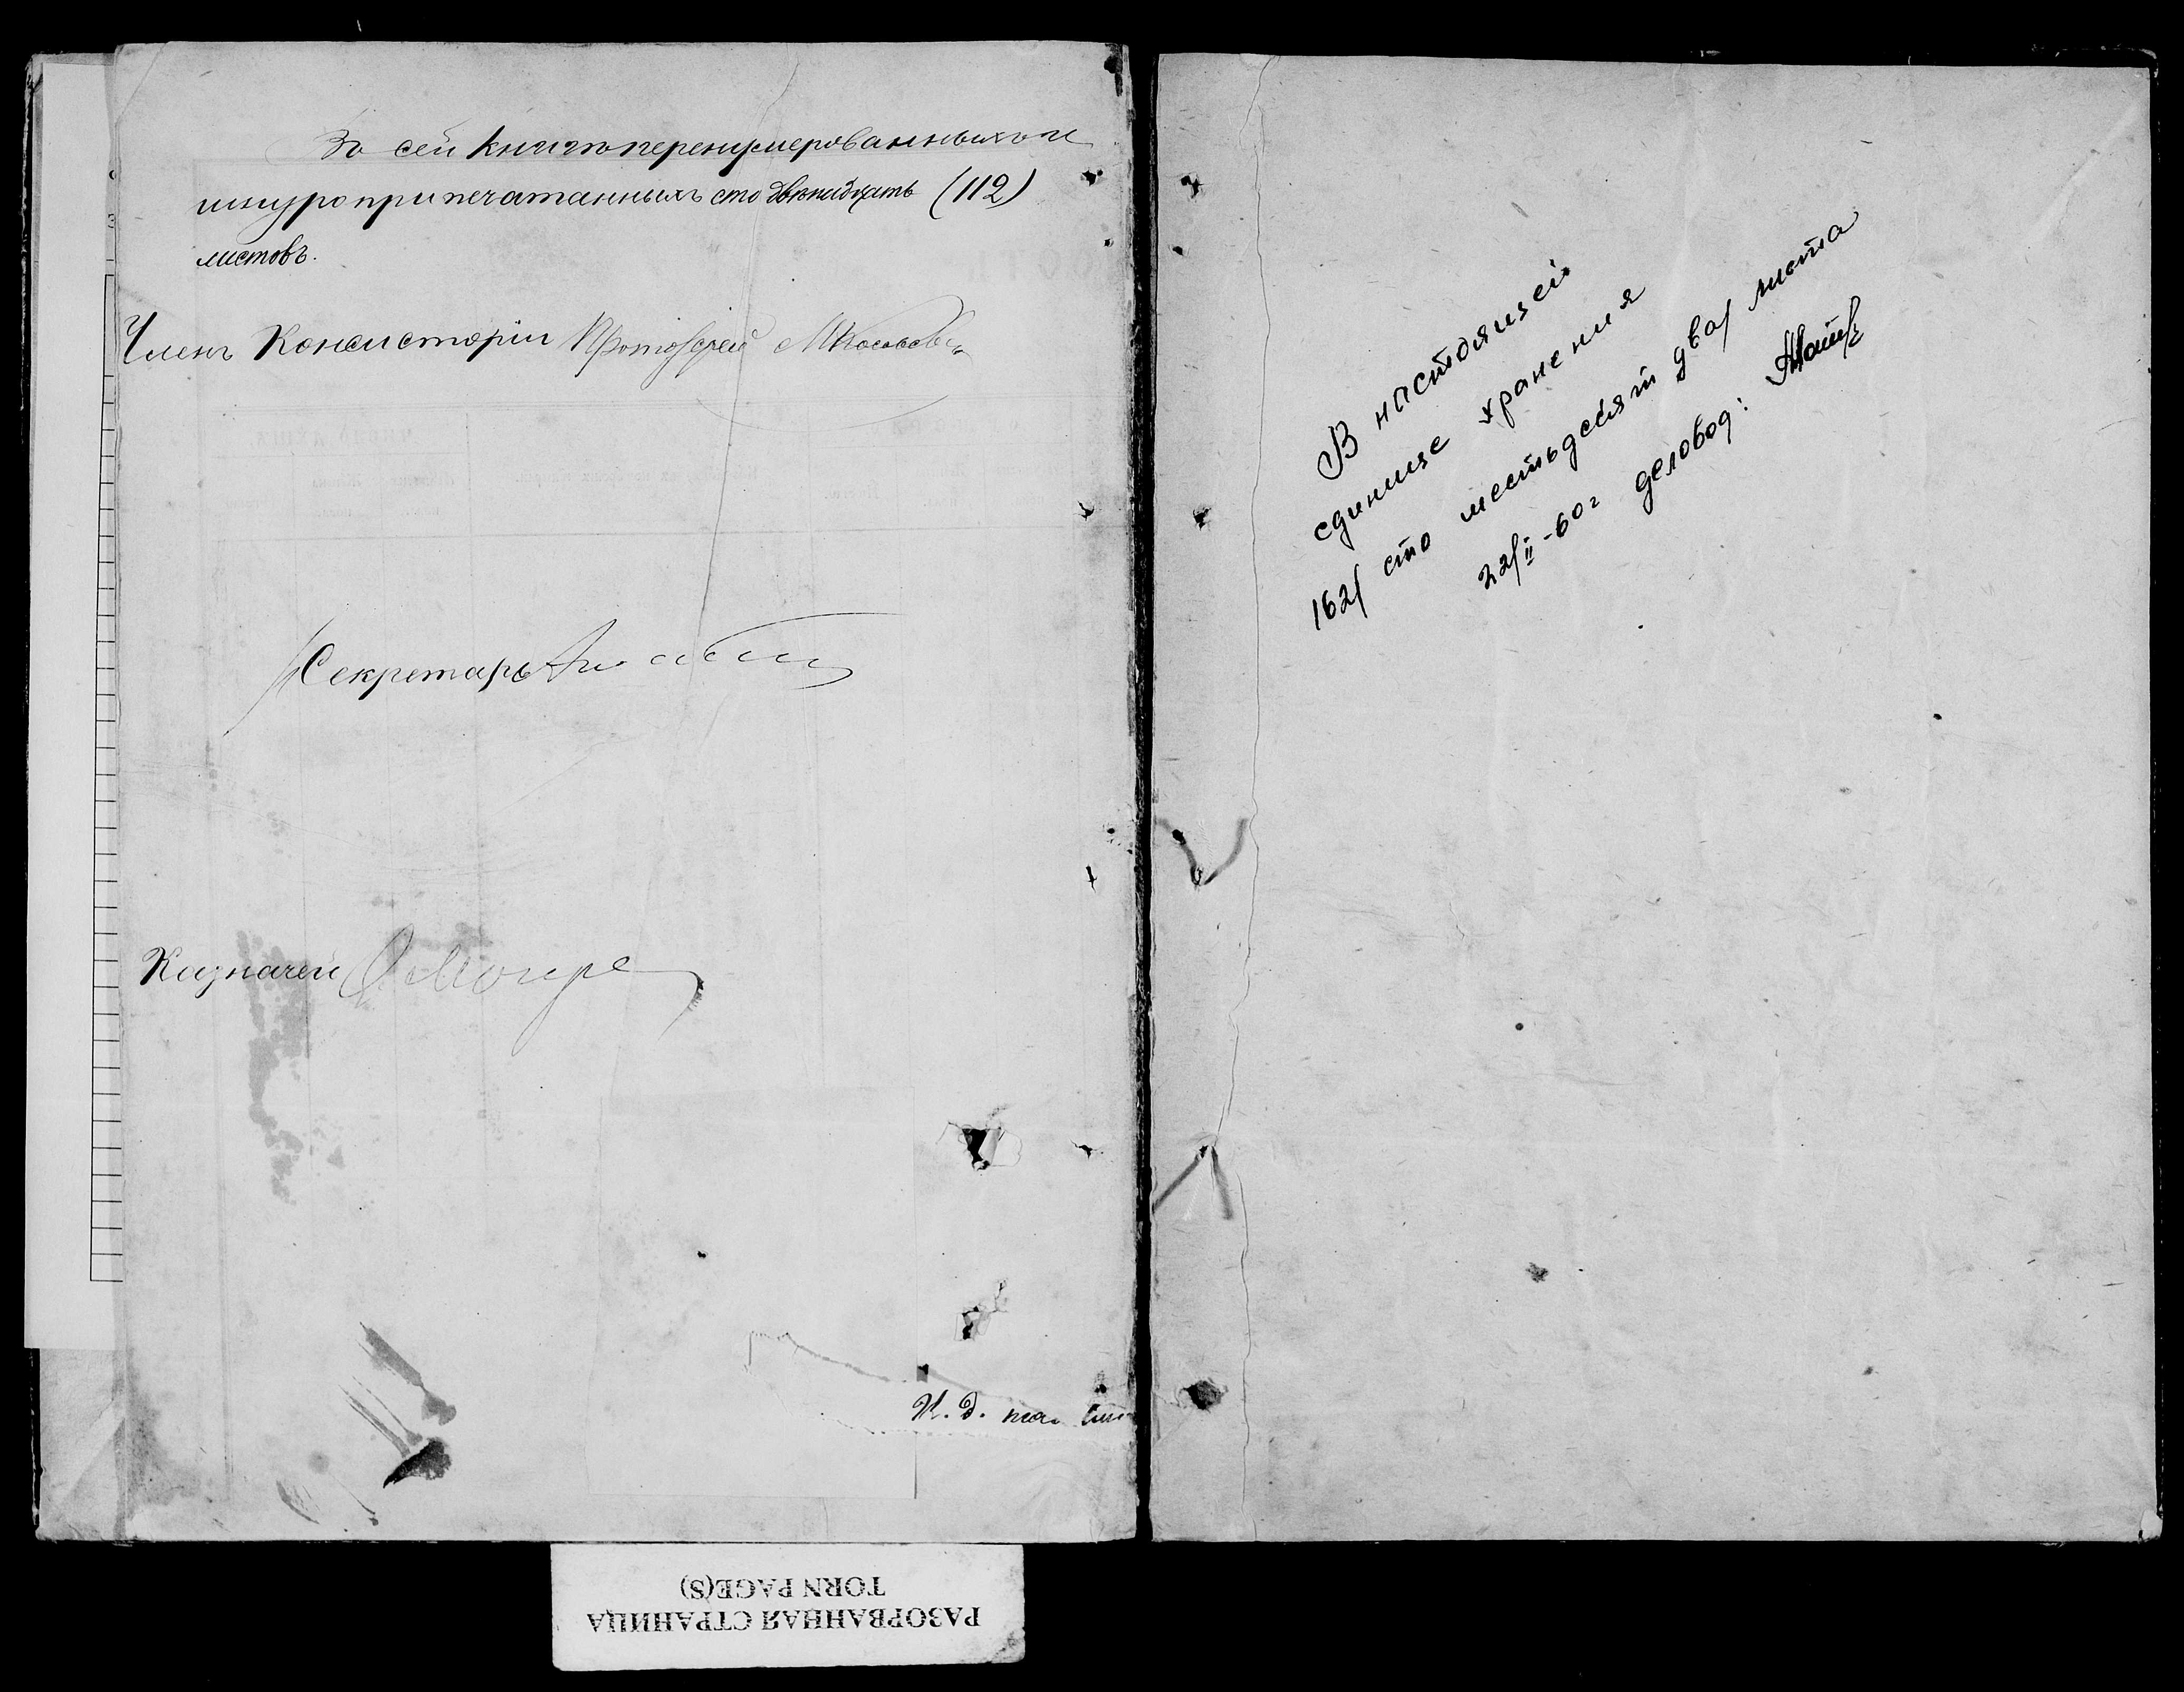 Въ сей книгѣ перенумерованныхъ и
шнуроприпечатанныхъ сто двѣнадцать (112)
листовъ.
Членъ Консисторіи Протоіерей
Секретарь
Казначей
И. д.
В настоящей
единице хранения
162/ сто шестьдесят два/ листа
22/II-60г деловод:
РАЗОРВАННАЯ СТРАНИЦА
TORN PAGE(S)